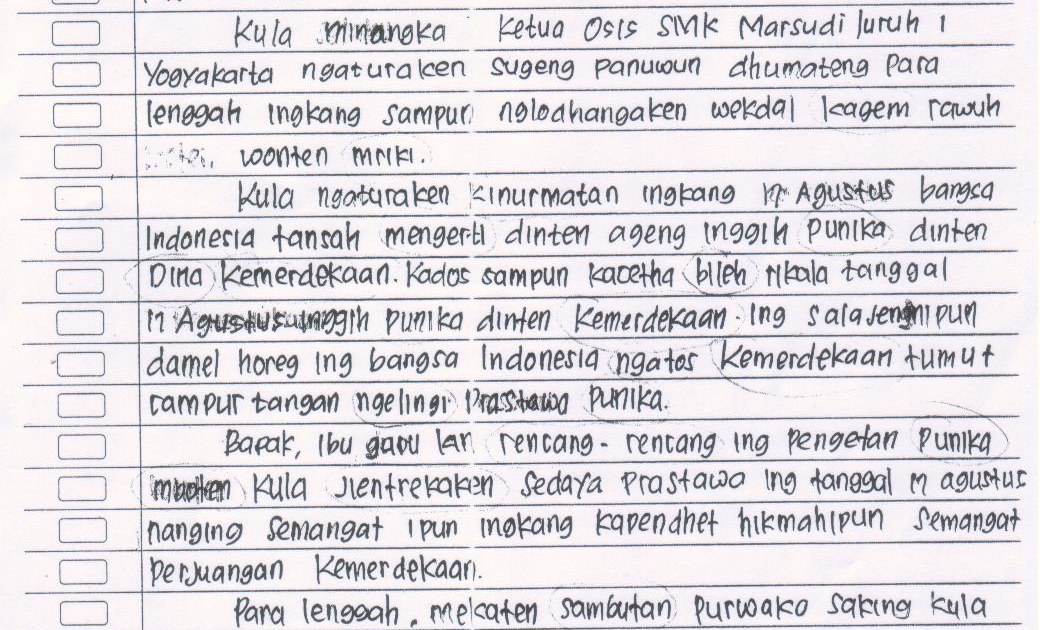 Kula minangka Ketua Osis SMK Marsudi luruh 1
Yogyakarta ngaturaken sugeng panuwun dhumateng Para
lenggah ingkang sampun nglodhangaken wekdal kagem rawuh
wonten mriki.
Kula ngaturaken kinurmatan ingkang 17 Agustus bangsa
Indonesia tansah mengerti dinten ageng inggih punika dinten
Dina Kemerdekaan. Kados sampun kacetha bileh rikala tanggal
17 Agustus inggih punika dinten Kemerdekaan. Ing salajengnipun
damel horeg ing bangsa Indonesia ngatos Kemerdekaan tumut
campur tangan ngelingi Prastawa Punika.
Bapak, Ibu guru lan rencang-rencang ing pengetan Punika
Kula Jlentrekaken Sedaya Prastawa ing tanggal 17 agustus
nanging semangat ipun ingkang kapendhet hikmahipun semangat
perjuangan Kemerdekaan.
Para lenggah, mekaten sambutan purwako saking kula